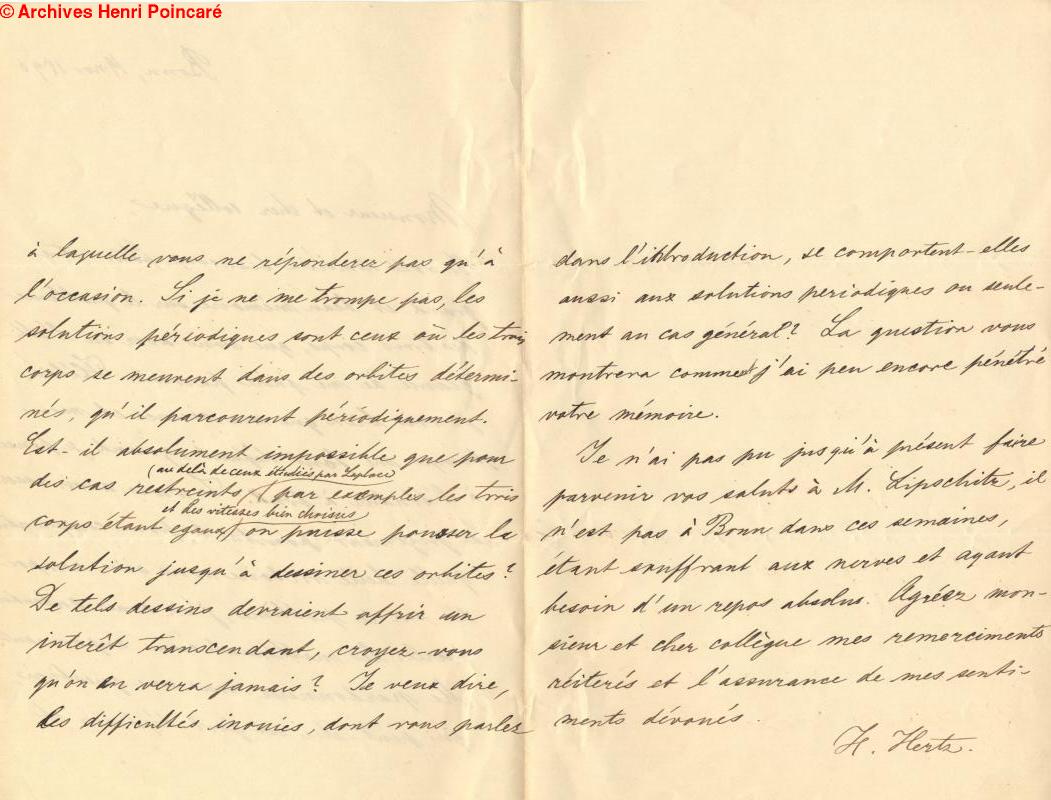 © Archives Henri Poincaré
à laquelle vous ne réponderez pas qu'à
l'occasion. Si je ne me trompe pas, les
solutions périodiques sont ceux où les trois
corps se meuvent dans des orbites détermi-
nés, qu'il parcourent périodiquement.
Est-il absolument impossible que pour
(au delà de ceux étudiées par Laplace
des cas restreints (par exemples les trois
et des vitesses bien choisies
corps étant egaux) on puisse pousser la
solution jusqu'à dessiner ces orbites?
De tels dessins devraient offrir un
interêt transcendant, croyez-vous
qu'on en verra jamais? Je veux dire,
les difficultés inouies, dont vous parlez
dans l'introduction, se comportent-elles
aussi aux solutions periodiques ou seule-
ment au cas général? La question vous
montrera comment j'ai peu encore pénétré
votre mémoire.
Je n'ai pas pu jusqu'à présent faire
parvenir vos saluts à M. Lipschitz, il
n'est pas à Bonn dans ces semaines,
étant souffrant aux nerves et ayant
besoin d'un repos absolus. Agréez mon-
sieur et cher collègue mes remerciments
réiterés et l'assurance de mes senti-
ments dévoués.
H. Hertz.